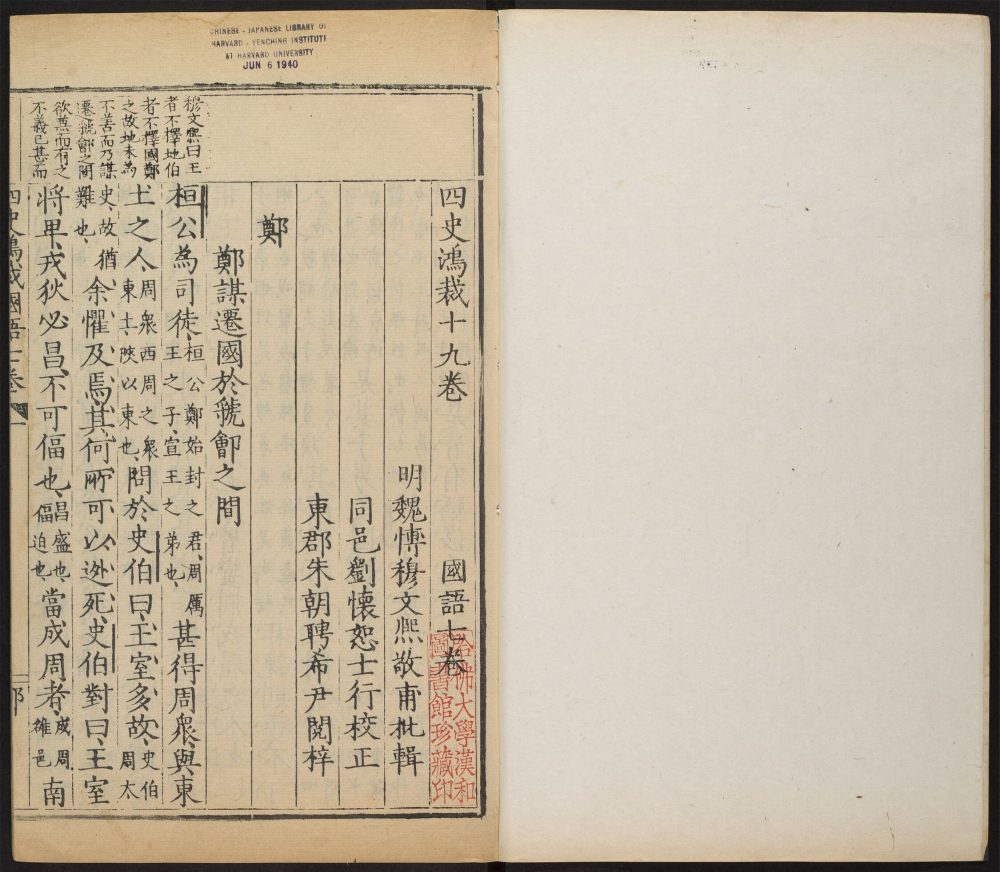 CHINESE - JAPANESE LIBRARY OF
HARVARD - YENCHING INSTITUTE
AT HARVARD UNIVERSITY
JUN 6 1940
穆文熙曰王
者不擇地伯
者不擇國鄭
之故地未為
不善而乃謀
遷虢鄶之間
欲蔫而有之
不義已甚而
四史鴻裁十九卷 國語七卷
明魏博穆文熙敬甫批輯
同邑劉懷恕士行校正
東郡朱朝聘希尹閱梓
鄭
鄭謀遷國於虢鄶之間
桓公為司徒、桓公鄭始封之君、周厲王之子、宣王之弟也、甚得周衆、與東
土之人、周衆西周之衆東土、陝以東也、問於史伯曰、王室多故、史伯周太
史、故猶難也、余懼及焉、其何所可以逃死、史伯對曰、王室
將卑、戎狄必昌、不可偪也、昌盛也、偪迫也、當成周者、成周雒邑南
四史鴻裁國語七卷 一
哈佛大學漢和
圖書館珍藏印